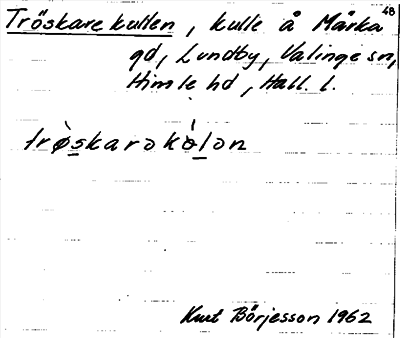 48
Tröskarekullen, kulle å Mårka
gd, Lundby, Valinge sn,
Himle hd, Hall. l.
trø̀skarəkó̤lən
Kurt Börjesson 1962